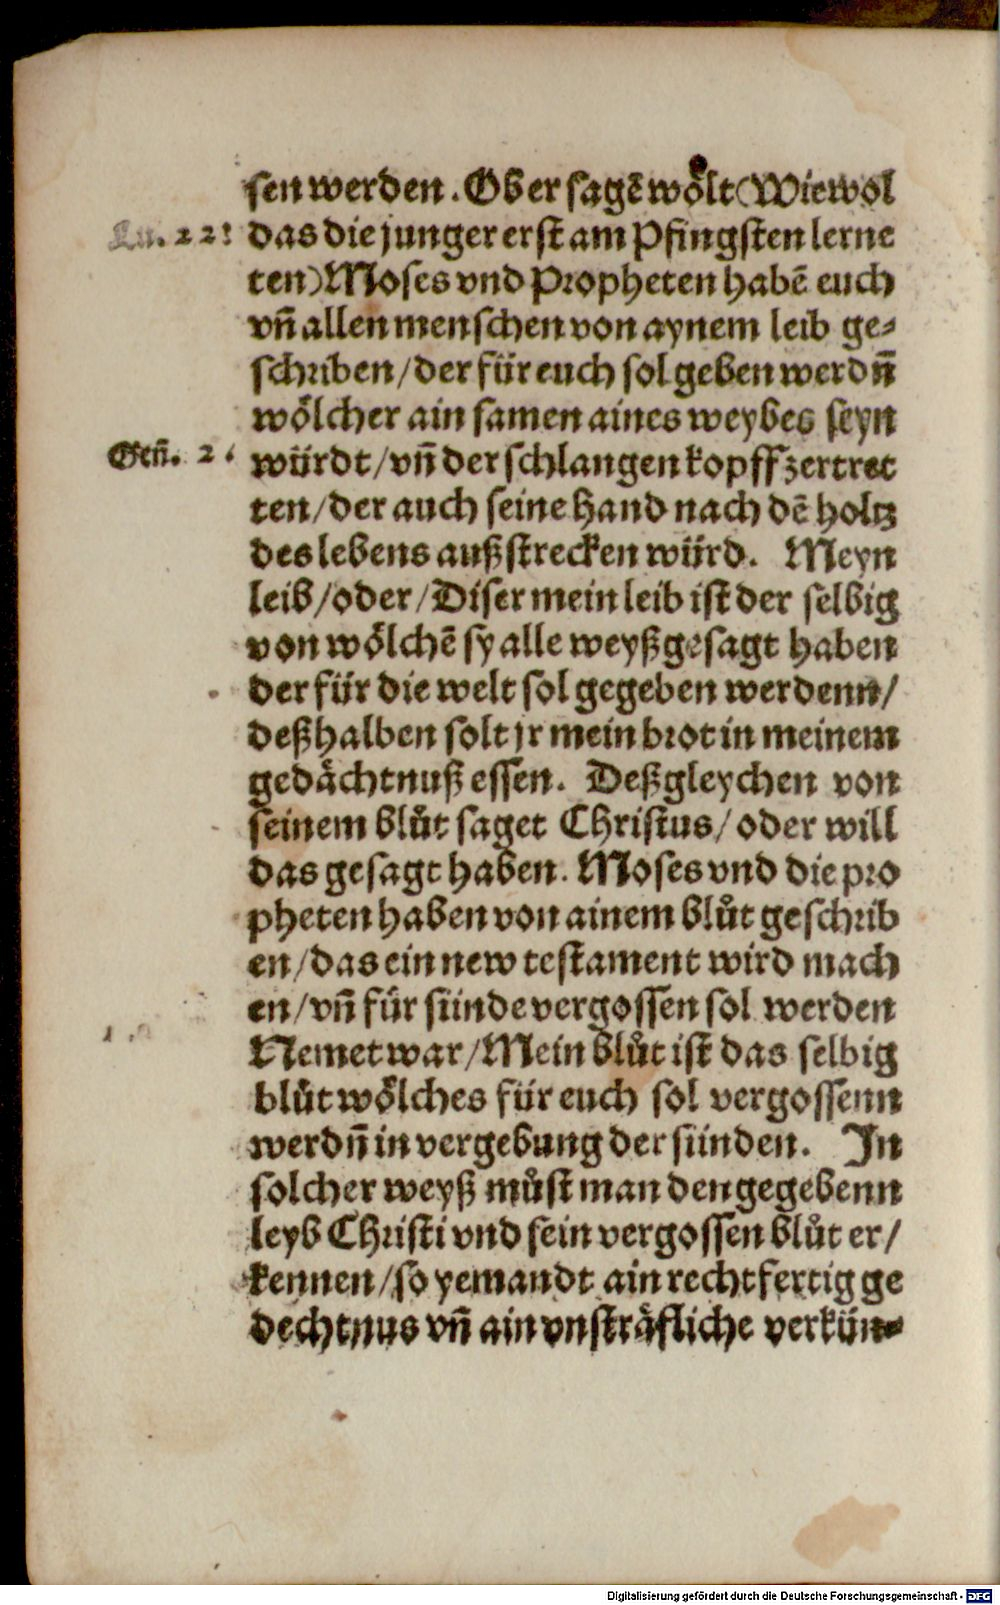 sen werden. Ob er sagē wölt (Wiewol
Lu. 22:
das die junger erst am Pfingsten lerne
ten) Moses vnd Propheten habē euch
vn̄ allen menschen von aynem leib ge-
schriben / der für euch sol geben werdn̄
wölcher ain samen aines weybes seyn
Gen̄. 2.
würdt / vn̄ der schlangen kopff zertret
ten / der auch seine hand nach dē holtz
des lebens außstrecken würd. Meyn
leib / oder / Diser mein leib ist der selbig
von wölchē sy alle weyßgesagt haben
der für die welt sol gegeben werdenn /
deßhalben solt jr mein brot in meinem
gedächtnuß essen. Deßgleychen von
seinem blůt saget Christus / oder will
das gesagt haben. Moses vnd die pro
pheten haben von ainem blůt geschrib
en / das ein new testament wird mach
en / vn̄ für sünde vergossen sol werden
Nemet war / Mein blůt ist das selbig
blůt wölches für euch sol vergossenn
werdn̄ in vergebung der sünden. In
solcher weyß můst man den gegebenn
leyb Christi vnd sein vergossen blůt er /
kennen / so yemandt ain rechtfertig ge
dechtnus vn̄ ain vnsträfliche verkün-
Digitalisierung gefördert durch die Deutsche Forschungsgemeinschaft - DFG